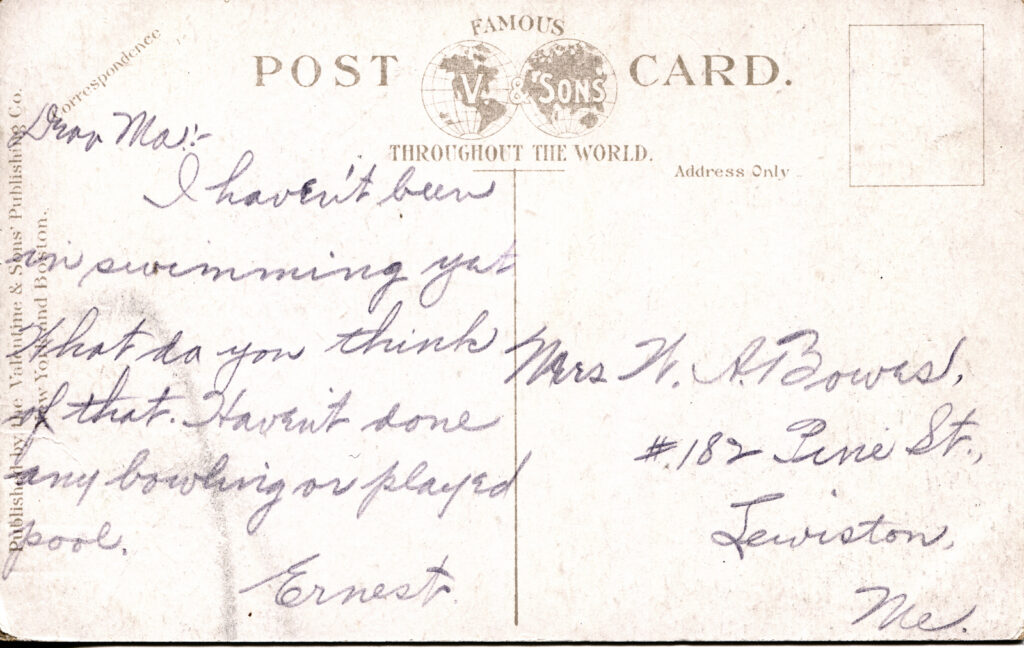 FAMOUS
POST CARD.
V. & SONS
THROUGHOUT THE WORLD.
Correspondence
Address Only
Published by the Valentine & Sons' Publishing Co.
New York and Boston.
Dear Ma:-
I haven't been
in swimming yet
What do you think
of that. Haven't done
any bowling or played
pool.
Ernest.
Mrs W. A. Bowes,
#.182 Pine St.,
Lewiston,
Me.